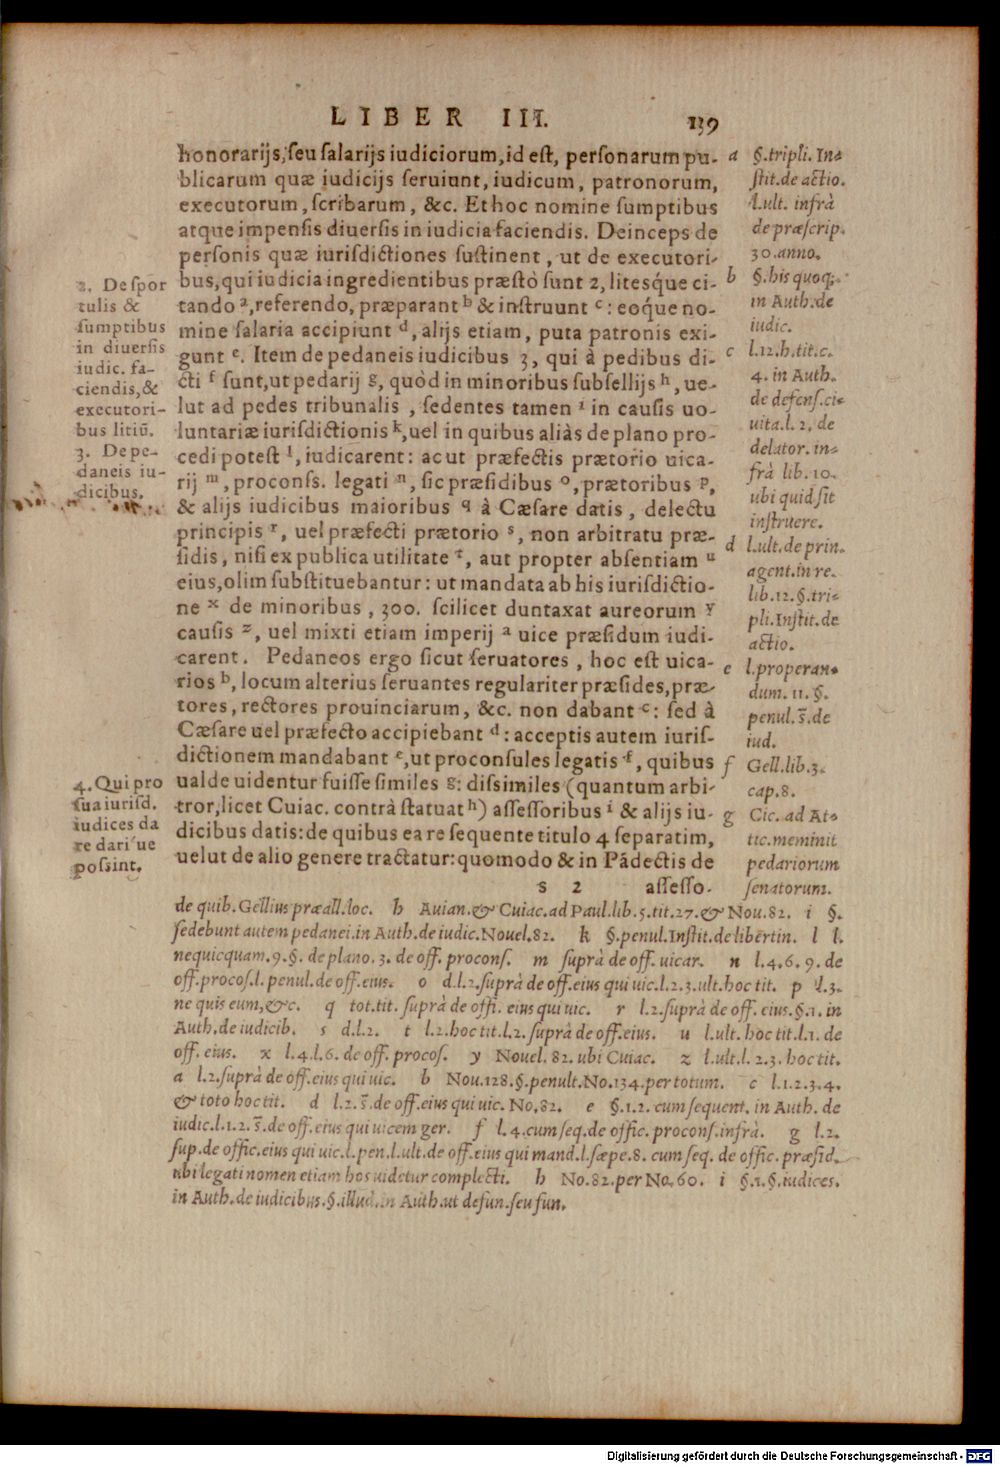 LIBER III. 139
honorarijs, seu salarijs iudiciorum, id est, personarum pu-
blicarum quæ iudicijs seruiunt, iudicum, patronorum,
executorum, scribarum, &c. Et hoc nomine sumptibus
atque impensis diuersis in iudicia faciendis. Deinceps de
personis quæ iurisdictiones sustinent, ut de executori-
bus, qui iudicia ingredientibus præstò sunt 2, litesq́ue ci-
tando a, referendo, præparant b & instruunt c: eoq́ue no-
mine salaria accipiunt d, alijs etiam, puta patronis exi-
gunt e. Item de pedaneis iudicibus 3, qui à pedibus di-
cti f sunt, ut pedarij g, quòd in minoribus subsellijs h, ue-
lut ad pedes tribunalis, sedentes tamen i in causis uo-
luntariæ iurisdictionis k, uel in quibus aliàs de plano pro-
cedi potest l, iudicarent: ac ut præfectis prætorio uica-
rij m, proconss. legati n, sic præsidibus o, prætoribus p,
& alijs iudicibus maioribus q à Cæsare datis, delectu
principis r, uel præfecti prætorio s, non arbitratu præ-
sidis, nisi ex publica utilitate t, aut propter absentiam u
eius, olim substituebantur: ut mandata ab his iurisdictio-
ne x de minoribus, 300. scilicet duntaxat aureorum y
causis z, uel mixti etiam imperij a uice præsidum iudi-
carent. Pedaneos ergo sicut seruatores, hoc est uica-
rios b, locum alterius seruantes regulariter præsides, præ-
tores, rectores prouinciarum, &c. non dabant c: sed à
Cæsare uel præfecto accipiebant d: acceptis autem iuris-
dictionem mandabant e, ut proconsules legatis f, quibus
ualde uidentur fuisse similes g: dissimiles (quantum arbi-
tror, licet Cuiac. contrà statuat h) assessoribus i & alijs iu-
dicibus datis: de quibus ea re sequente titulo 4 separatim,
uelut de alio genere tractatur: quomodo & in Pādectis de
s 2 assesso-
2. De spor
tulis &
sumptibus
in diuersis
iudic. fa-
ciendis, &
executori-
bus litiū.
3. De pe-
daneis iu-
dicibus.
4. Qui pro
sua iurisd.
iudices da
re dari ue
possint.
a §. tripli. In-
stit. de actio.
l. ult. infrà
de præscrip.
30. anno.
b §. his quoq;.
in Auth. de
iudic.
c l. 12. h. tit. c.
4. in Auth.
de defens. ci-
uita. l. 2. de
delator. in-
frà lib. 10.
ubi quid sit
instruere.
d l. ult. de prin.
agent. in re.
lib. 12. §. tri-
pli. Instit. de
actio.
e l. properan-
dum. 11. §.
penul. s̄. de
iud.
f Gell. lib. 3.
cap. 8.
g Cic. ad At-
tic. meminit
pedariorum
senatorum.
de quib. Gellius præall. loc. h Auian. & Cuiac. ad Paul. lib. 5. tit. 27. & Nou. 82. i §.
sedebunt autem pedanei. in Auth. de iudic. Nouel. 82. k §. penul. Instit. de libertin. l l.
nequicquam. 9. §. de plano. 3. de off. procons. m suprà de off. uicar. n l. 4. 6. 9. de
off. procos. l. penul. de off. eius. o d. l. 2. suprà de off. eius qui uic. l. 2. 3. ult. hoc tit. p l. 3.
ne quis eum, &c. q tot. tit. suprà de offi. eius qui uic. r l. 2. suprà de off. eius. §. 1. in
Auth. de iudicib. s d. l. 2. t l. 2. hoc tit. l. 2. suprà de off. eius. u l. ult. hoc tit. l. 1. de
off. eius. x l. 4. l. 6. de off. procos. y Nouel. 82. ubi Cuiac. z l. ult. l. 2. 3. hoc tit.
a l. 2. suprà de off. eius qui uic. b Nou. 128. §. penult. No. 134. per totum. c l. 1. 2. 3. 4.
& toto hoc tit. d l. 2. s̄. de off. eius qui uic. No. 82. e §. 1. 2. cum sequent. in Auth. de
iudic. l. 1. 2. s̄. de off. eius qui uicem ger. f l. 4. cum seq. de offic. procons. infrà. g l. 2.
sup. de offic. eius qui uic. l. pen. l. ult. de off. eius qui mand. l. sæpe. 8. cum seq. de offic. præsid.
ubi legati nomen etiam hos uidetur complecti. h No. 82. per No. 60. i §. 1. §. iudices.
in Auth. de iudicibus. §. illud. in Auth. ut defun. seu fun.
Digitalisierung gefördert durch die Deutsche Forschungsgemeinschaft - DFG